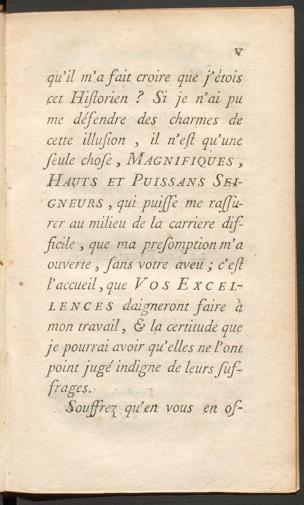 v
qu'il m'a fait croire que j'étois
cet Hiſtorien ? Si je n'ai pu
me défendre des charmes de
cette illuſion , il n'eſt qu'une
ſeule choſe , MAGNIFIQUES ,
HAUTS ET PUISSANS SEI-
GNEURS , qui puiſſe me raſſu-
rer au milieu de la carriere dif-
ficile , que ma preſomption m'a
ouverte , ſans votre aveu ; c'eſt
l'accueil , que VOS EXCEL-
LENCES daigneront faire à
mon travail, & la certitude que
je pourrai avoir qu'elles ne l'ont
point jugé indigne de leurs ſuf-
frages.
Souffrez qu'en vous en of-